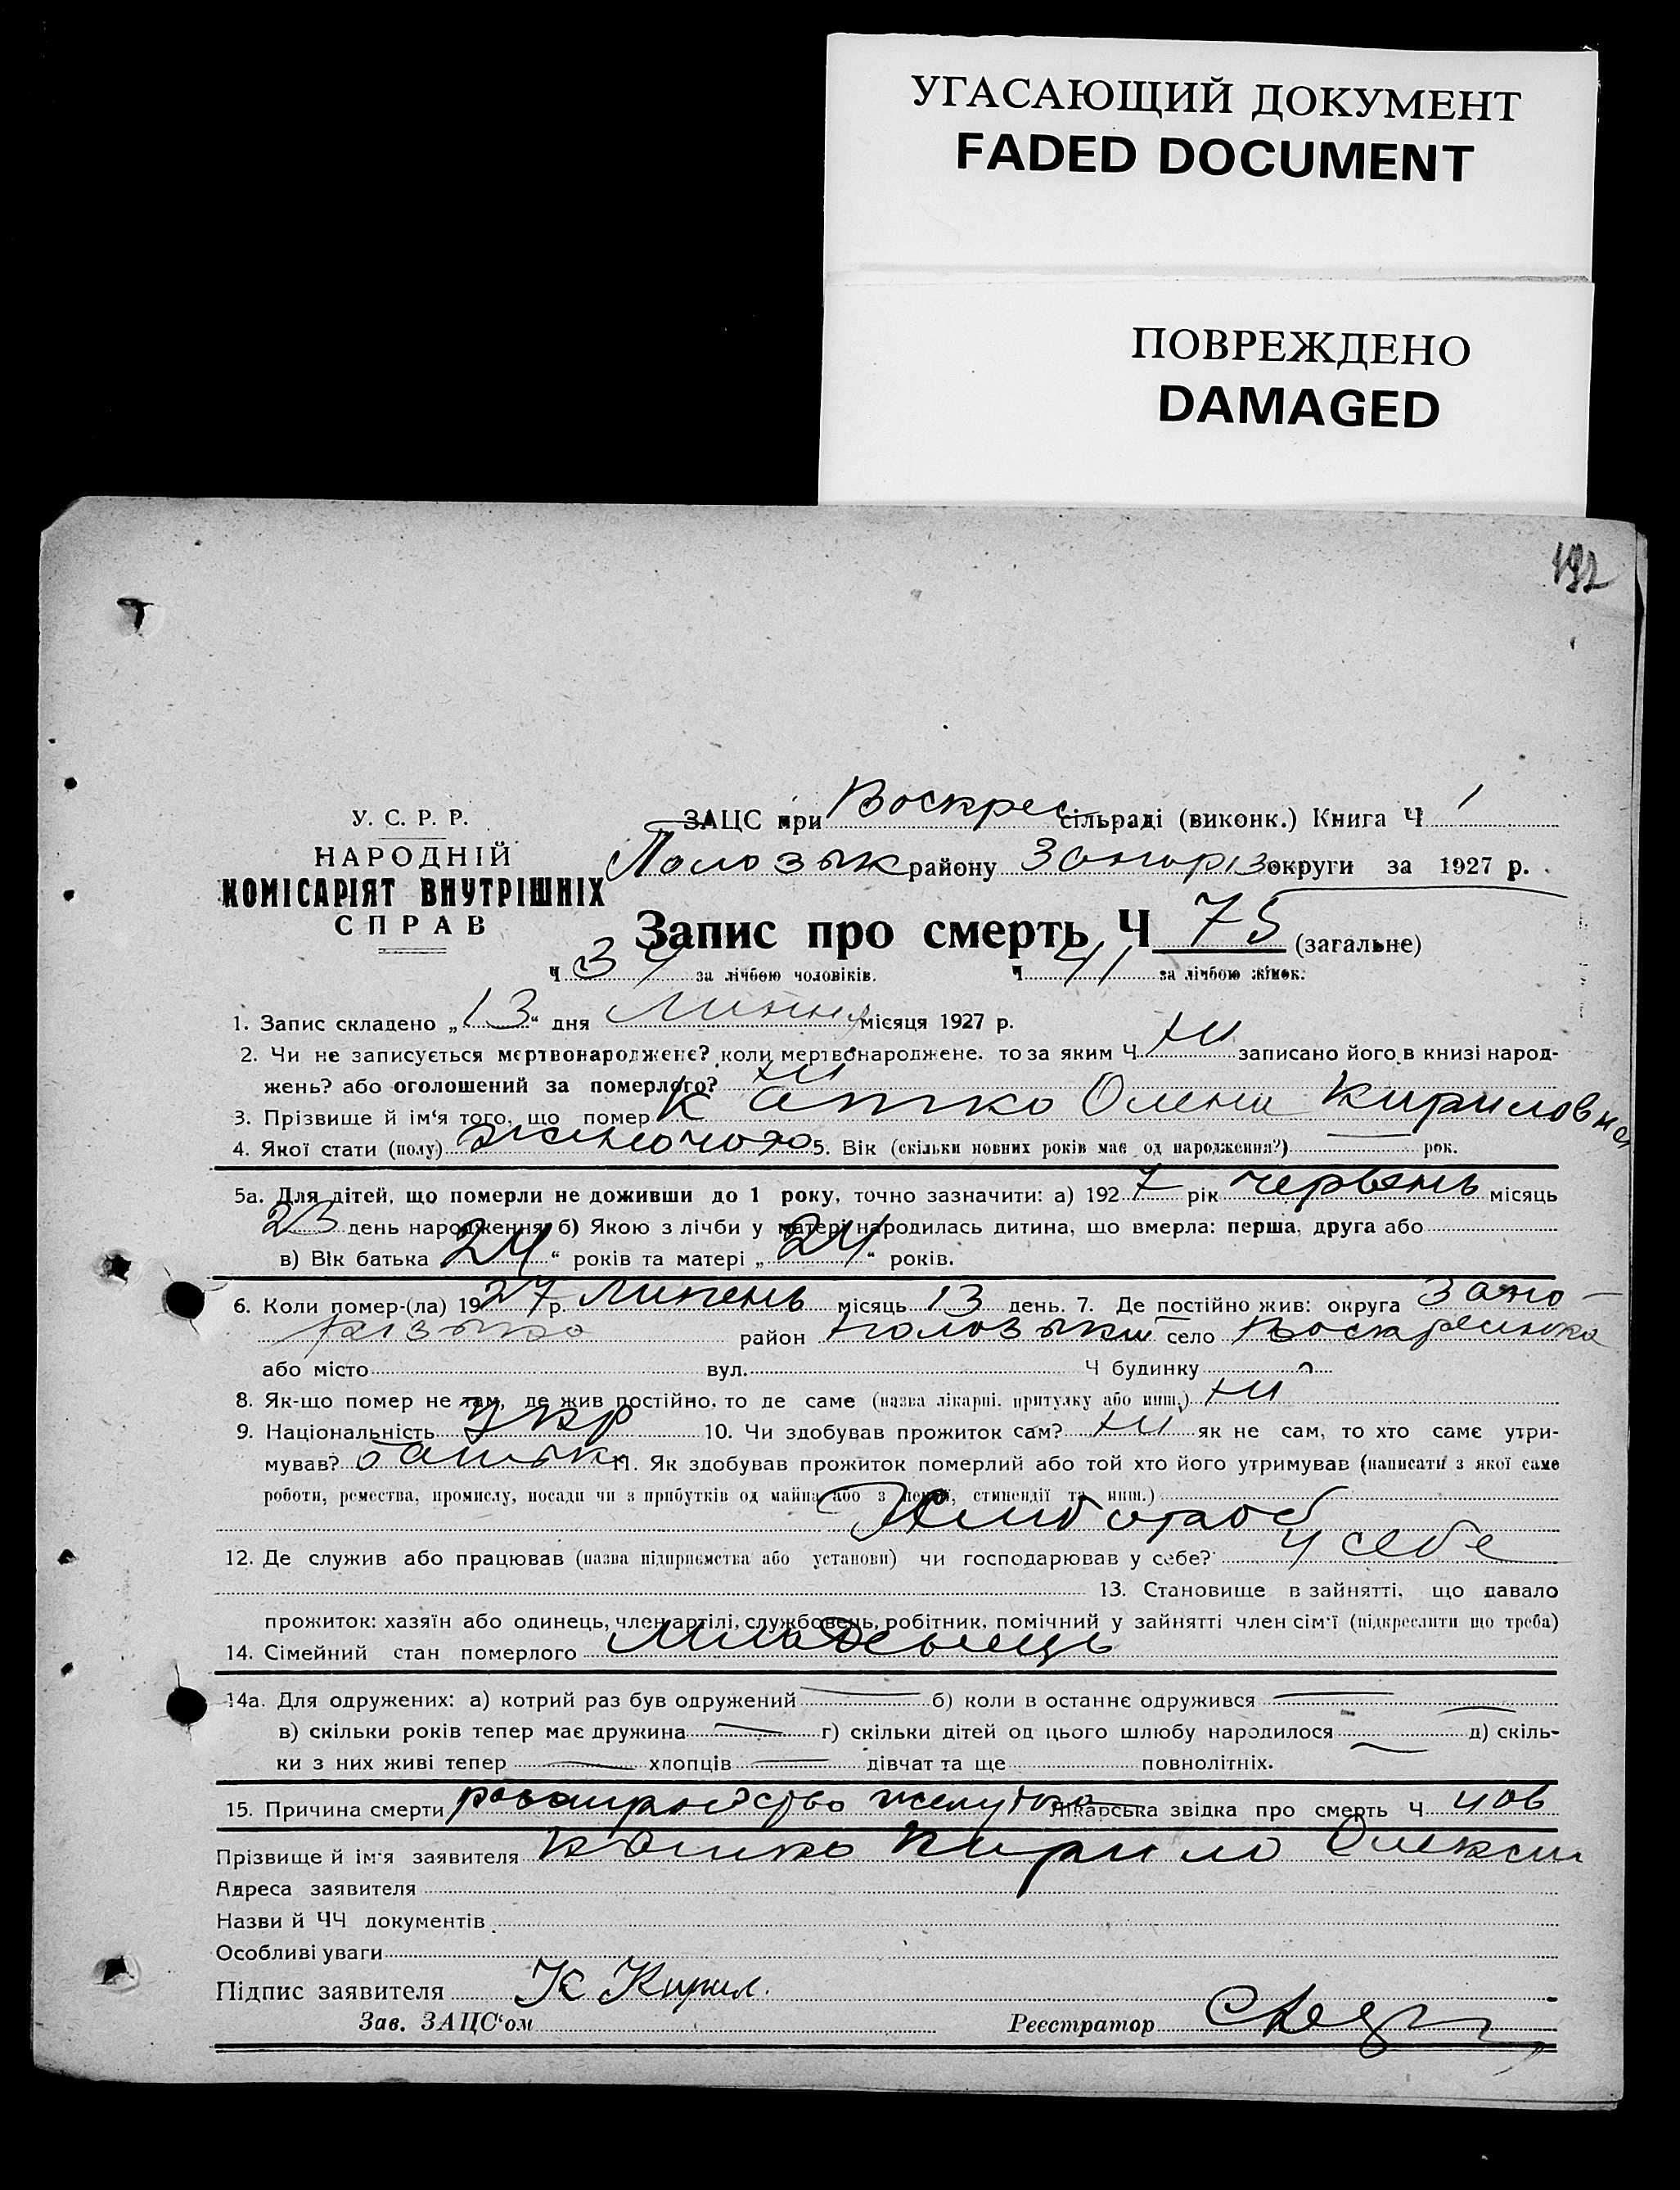 УГАСАЮЩИЙ ДОКУМЕНТ
FADED DOCUMENT
ПОВРЕЖДЕНО
DAMAGED
192
У. С. Р. Р.
НАРОДНІЙ
КОМІСАРІЯТ ВНУТРІШНІХ
СПРАВ
ЗАЦС при Воскрес сільраді (виконк.) Книга Ч 1
Полозьк району Запоріз округи за 1927 р.
Запис про смерть Ч 75 (загальне)
Ч 34 за лічбою чоловіків. Ч 41 за лічбою жінок.
1. Запис складено „13“ дня Липня місяця 1927 р.
2. Чи не записується мертвонароджене? коли мертвонароджене. то за яким Ч ні записано його в книзі народ-
жень? або оголошений за померлого? ні
3. Прізвище й ім‘я того, що помер Олена Кириловна
4. Якої стати (полу) жіночого 5. Вік (скільки повних років має од народження?) — рок.
5а. Для дітей, що померли не доживши до 1 року, точно зазначити: а) 1927 рік червень місяць
23 день народження б) Якою з лічби у матері народилась дитина, що вмерла: перша, друга або
в) Вік батька 24“ років та матері „24“ років.
6. Коли помер-(ла) 1927 р. Липень місяць 13 день. 7. Де постійно жив: округа Запо-
різька район Полозький село Воскресинка
або місто вул. Ч будинку
8. Як-що помер не там, де жив постійно, то де саме (назва лікарні. притулку або инш.) ні
9. Національність Укр 10. Чи здобував прожиток сам? ні як не сам, то хто саме утри-
мував? батько 11. Як здобував прожиток померлий або той хто його утримував (написати з якої саме
роботи, ремества, промислу, посади чи з прибутків од майна або з пенсії, стипендії та инш.)
Хлібороб
12. Де служив або працював (назва підприємства або установи) чи господарював у себе? у себе
13. Становище в зайнятті, що давало
прожиток: хазяїн або одинець, член артілі, службовець, робітник, помічний у зайнятті член сім‘ї (підкреслити що треба)
14. Сімейний стан померлого Младенець
14а. Для одружених: а) котрий раз був одружений — б) коли в останнє одружився —
в) скільки років тепер має дружина — г) скільки дітей од цього шлюбу народилося — д) скіль-
ки з них живі тепер — хлопців — дівчат та ще повнолітніх.
15. Причина смерти желудка лікарська звідка про смерть Ч
Прізвище й ім‘я заявителя Кирило Олекси
Адреса заявителя
Назви й ЧЧ документів
Особливі уваги
Підпис заявителя К Кирил.
Зав. ЗАЦС‘ом Реєстратор